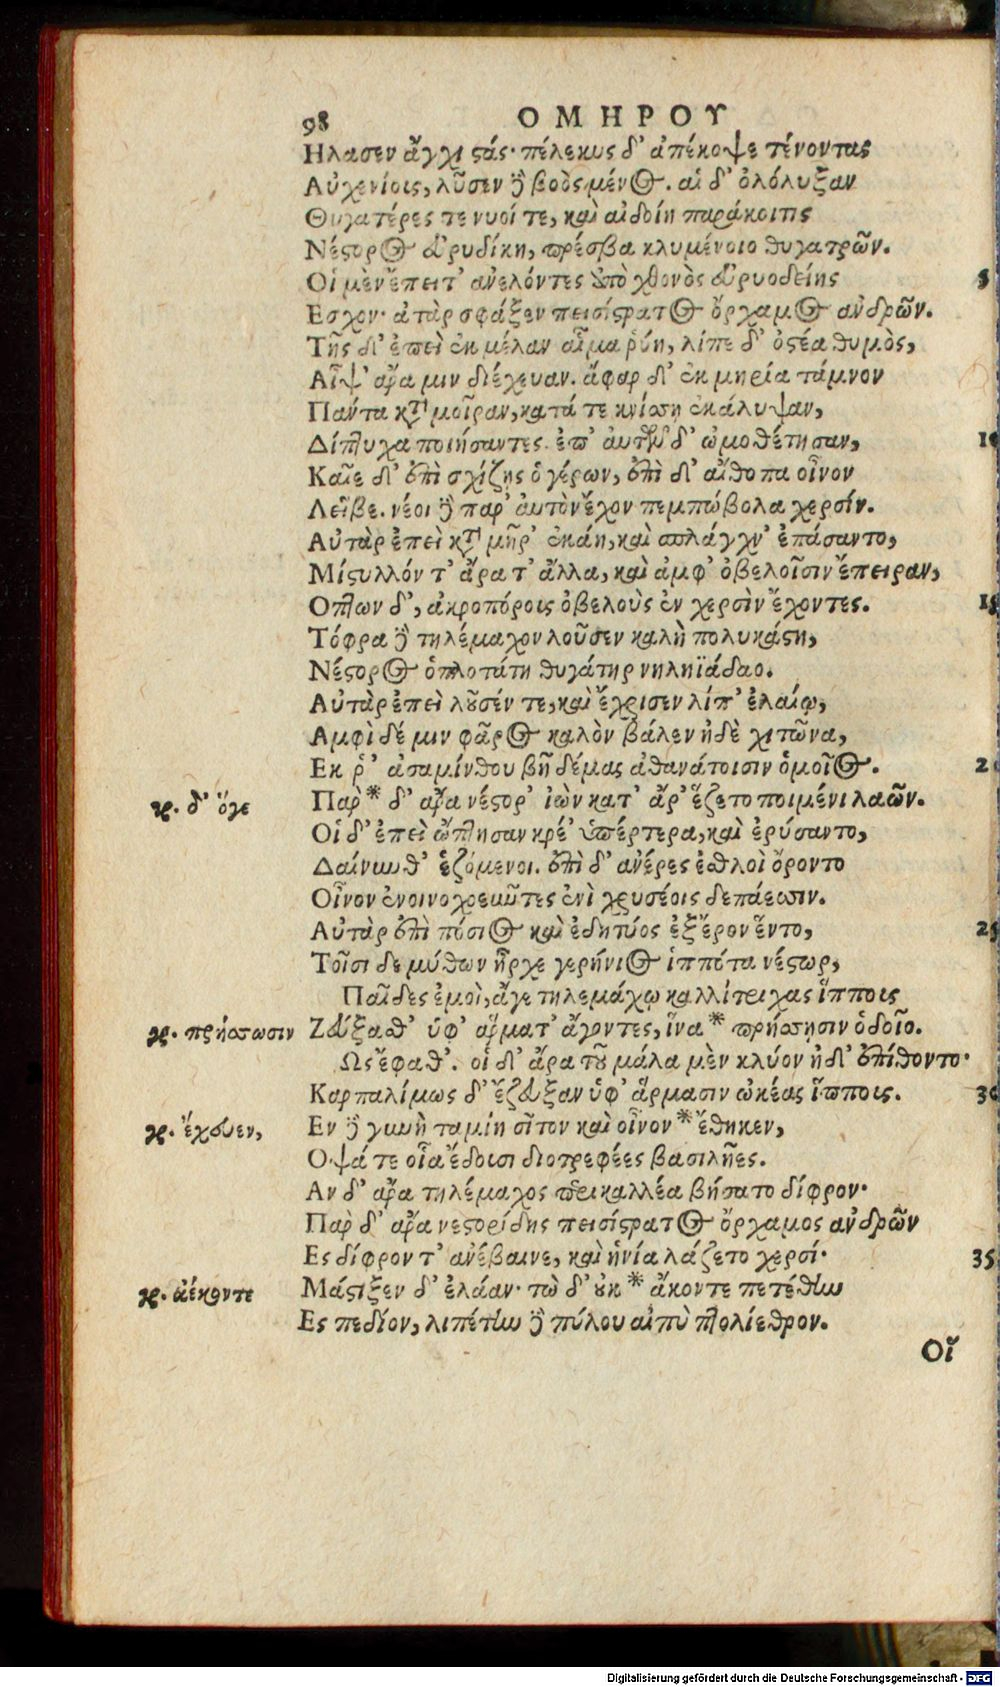 98 ΟΜΗΡΟΥ
Ηλασεν ἄγχι ςάς· πέλεκυς δ' ἀπέκοψε τένοντας
Αὐχενίοις, λῦσεν δὲ βοὸς μένος. αἱ δ' ὀλόλυξαν
Θυγατέρες τε νυοί τε, καὶ αἰδοίη παράκοιτις
Νέςορος Εὐρυδίκη, πρέσβα κλυμένοιο θυγατρῶν.
Οἱ μὲν ἔπειτ' ἀνελόντες ἀπὸ χθονὸς εὐρυοδείης 5
Εσχον· ἀτὰρ σφάξεν πεισίςρατος ὄρχαμος ἀνδρῶν.
Τῆς δ' ἐπεὶ ἐκ μέλαν αἷμα ῥύη, λίπε δ' ὀςέα θυμὸς,
Αἶψ' ἄρα μιν διέχευαν. ἄφαρ δ' ἐκ μηρία τάμνον
Πάντα κατὰ μοῖραν, κατά τε κνίσῃ ἐκάλυψαν,
Δίπτυχα ποιήσαντες. ἐπ' αὐτῶν δ' ὠμοθέτησαν, 10
Καῖε δ' ἐπὶ σχίζῃς ὁ γέρων, ἐπὶ δ' αἴθοπα οἶνον
Λεῖβε. νέοι δὲ παρ' αὐτὸν ἔχον πεμπώβολα χερσίν.
Αὐτὰρ ἐπεὶ κατὰ μῆρ' ἐκάη, καὶ σπλάγχν' ἐπάσαντο,
Μίςυλλόν τ' ἄρα τ' ἄλλα, καὶ ἀμφ' ὀβελοῖσιν ἔπειραν,
Οπτων δ', ἀκροπόροις ὀβελοὺς ἐν χερσὶν ἔχοντες. 15
Τόφρα δὲ τηλέμαχον λοῦσεν καλὴ πολυκάςη,
Νέςορος ὁπλοτάτη θυγάτηρ νηληϊάδαο.
Αὐτὰρ ἐπεὶ λοῦσέν τε, καὶ ἔχρισεν λίπ' ἐλαίῳ,
Αμφὶ δέ μιν φᾶρος καλὸν βάλεν ἠδὲ χιτῶνα,
Εκ ῥ' ἀσαμίνθου βῆ δέμας ἀθανάτοισιν ὁμοῖος. 20
γρ. δ' ὅγε Παρ* δ' ἄρα νέςορ' ἰὼν κατ' ἄρ' ἕζετο ποιμένι λαῶν.
Οἱ δ' ἐπεὶ ὤπτησαν κρέ' ὑπέρτερα, καὶ ἐρύσαντο,
Δαίνυνθ' ἑζόμενοι. ἐπὶ δ' ἀνέρες ἐσθλοὶ ὄροντο
Οἶνον ἐνοινοχοεῦντες ἐνὶ χρυσέοις δεπάεσσιν.
Αὐτὰρ ἐπεὶ πόσιος καὶ ἐδητύος ἐξ ἔρον ἕντο, 25
Τοῖσι δε μύθων ἦρχε γερήνιος ἱππότα νέςωρ,
Παῖδες ἐμοὶ, ἄγε τηλεμάχῳ καλλίτριχας ἵππους
γρ. πρήσσωσιν Ζεύξαθ' ὑφ' ἅρματ' ἄγοντες, ἵνα* πρήσσησιν ὁδοῖο.
Ως ἔφαθ'. οἱ δ' ἄρα τοῦ μάλα μὲν κλύον ἠδ' ἐπίθοντο·
Καρπαλίμως δ' ἔζευξαν ὑφ' ἅρμασιν ὠκέας ἵππους. 30
γρ. ἔχευεν, Εν δὲ γυνὴ ταμίη σῖτον καὶ οἶνον* ἔθηκεν,
Οψά τε οἷα ἔδουσι διοτρεφέες βασιλῆες.
Αν δ' ἄρα τηλέμαχος περικαλλέα βήσατο δίφρον·
Παρ δ' ἄρα νεςορίδης πεισίςρατος ὄρχαμος ἀνδρῶν
Ες δίφρον τ' ἀνέβαινε, καὶ ἡνία λάζετο χερσί· 35
γρ. ἀέκοντε Μάςιξεν δ' ἐλάαν· τὼ δ' οὐκ* ἄκοντε πετέσθην
Ες πεδίον, λιπέτην δὲ πύλου αἰπὺ πτολίεθρον.
Οἵ
Digitalisierung gefördert durch die Deutsche Forschungsgemeinschaft - DFG